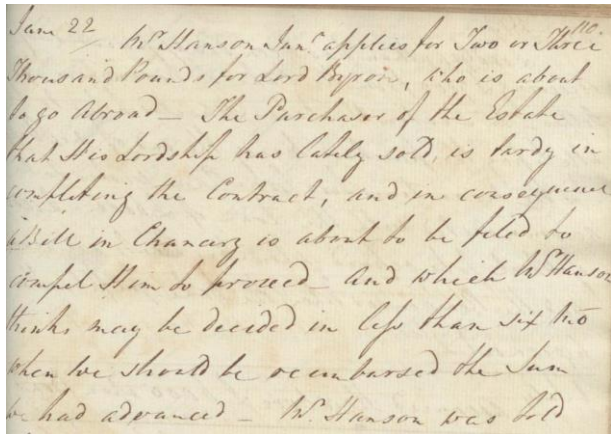 June 22 110.
Mr. Hanson Junr. applies for Two or Three
Thousand Pounds for Lord Byron, who is about
to go abroad — The Purchaser of the Estate
that His Lordship has lately sold, is tardy in
completing the Contract, and in consequence
a Bill in Chancery is about to be filed to
compel Him to proceed — and which Mr. Hanson
thinks may be decided in less than six Mo
when we should be reembursed the Sum
we had advanced — Mr. Hanson was told